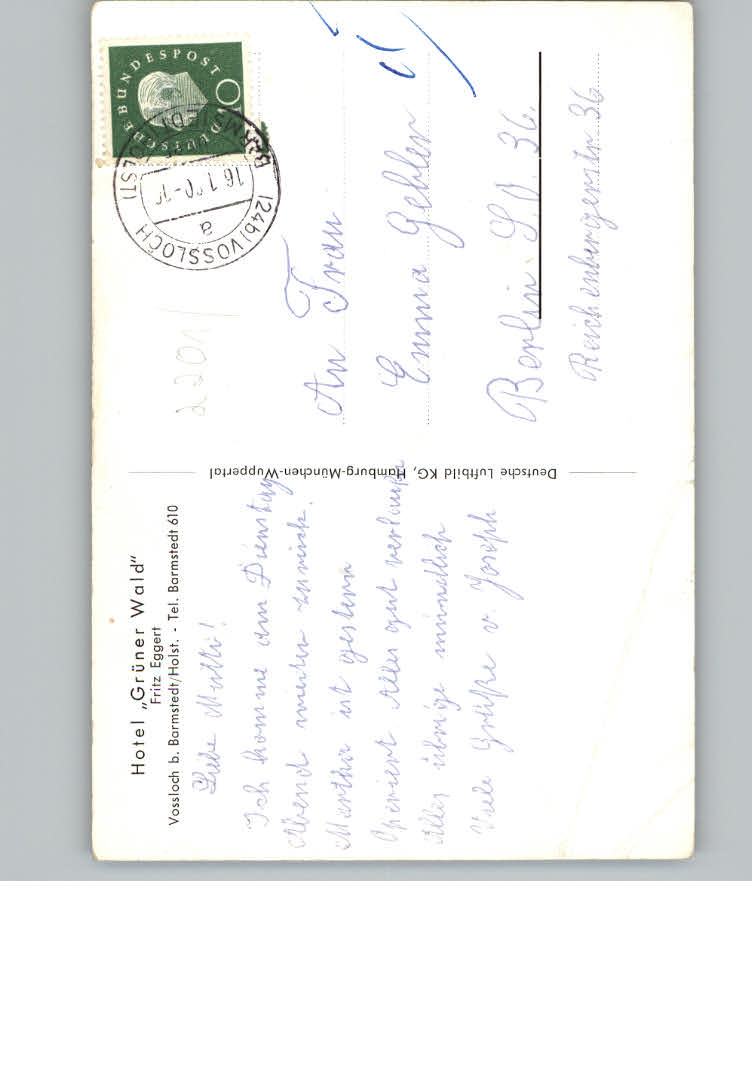 Hotel „Grüner Wald"
Fritz Eggert
Vossloch b. Barmstedt/Holst. - Tel. Barmstedt 610
Liebe Mutti!
Ich komme am Dienstag
Abend wieder zurück.
Martha ist gestern
Operiert Alles gut verlaufen
Alles übrige mündlich
Viele Grüße v. Joseph
Deutsche Luftbild KG, Hamburg-München-Wuppertal
DEUTSCHE BUNDESPOST
(24b) VOSSLOCH
a
2201
An Frau
Emma Gebler
Berlin S.O. 36.
Reichenbergerstr 36